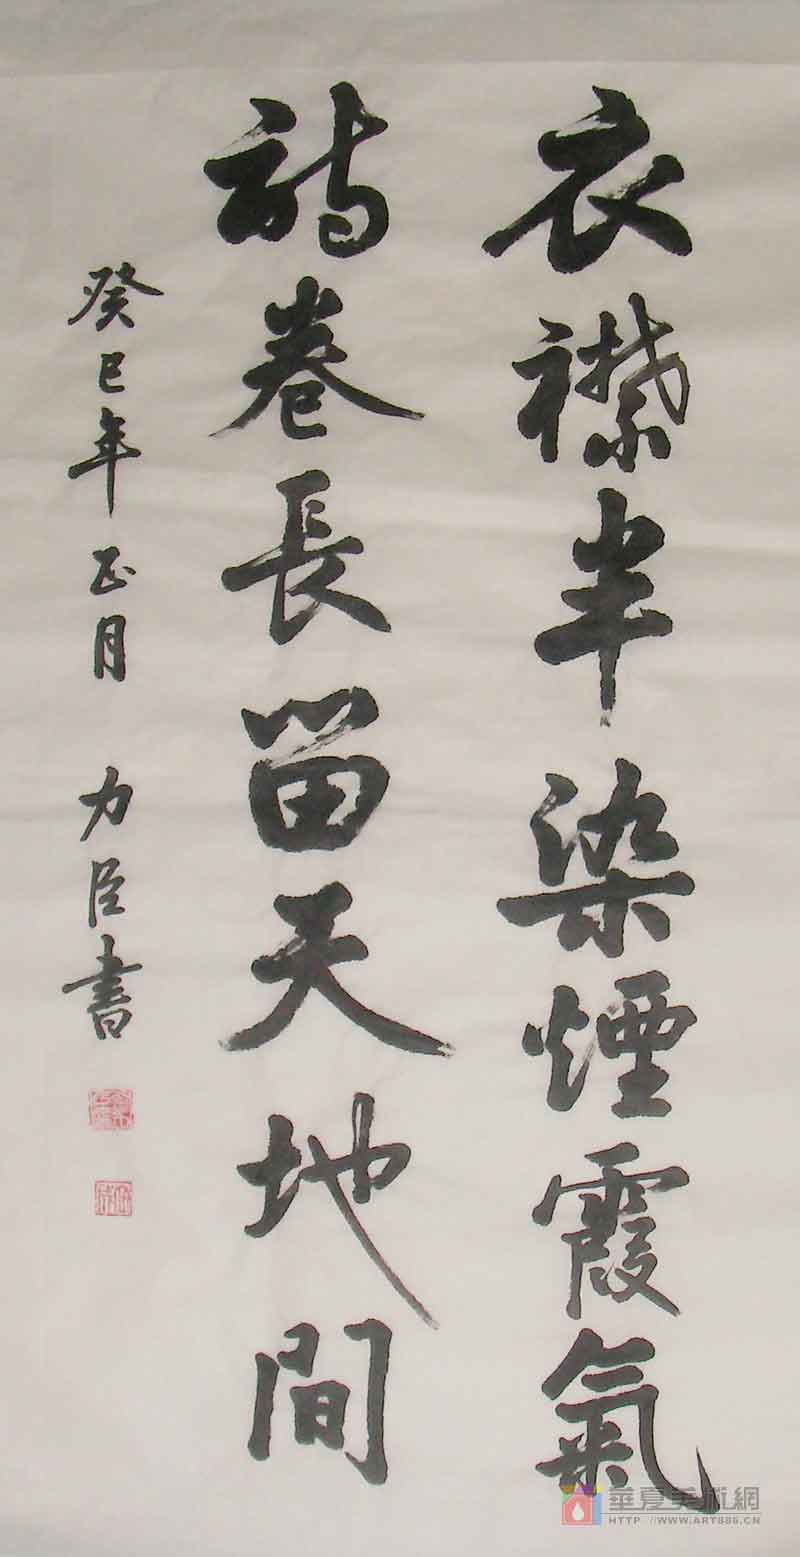 衣襟半染煙霞氣
詩卷長留天地間
癸巳年正月 力臣書
華夏美術網
HTTP://WWW.ART886.CN